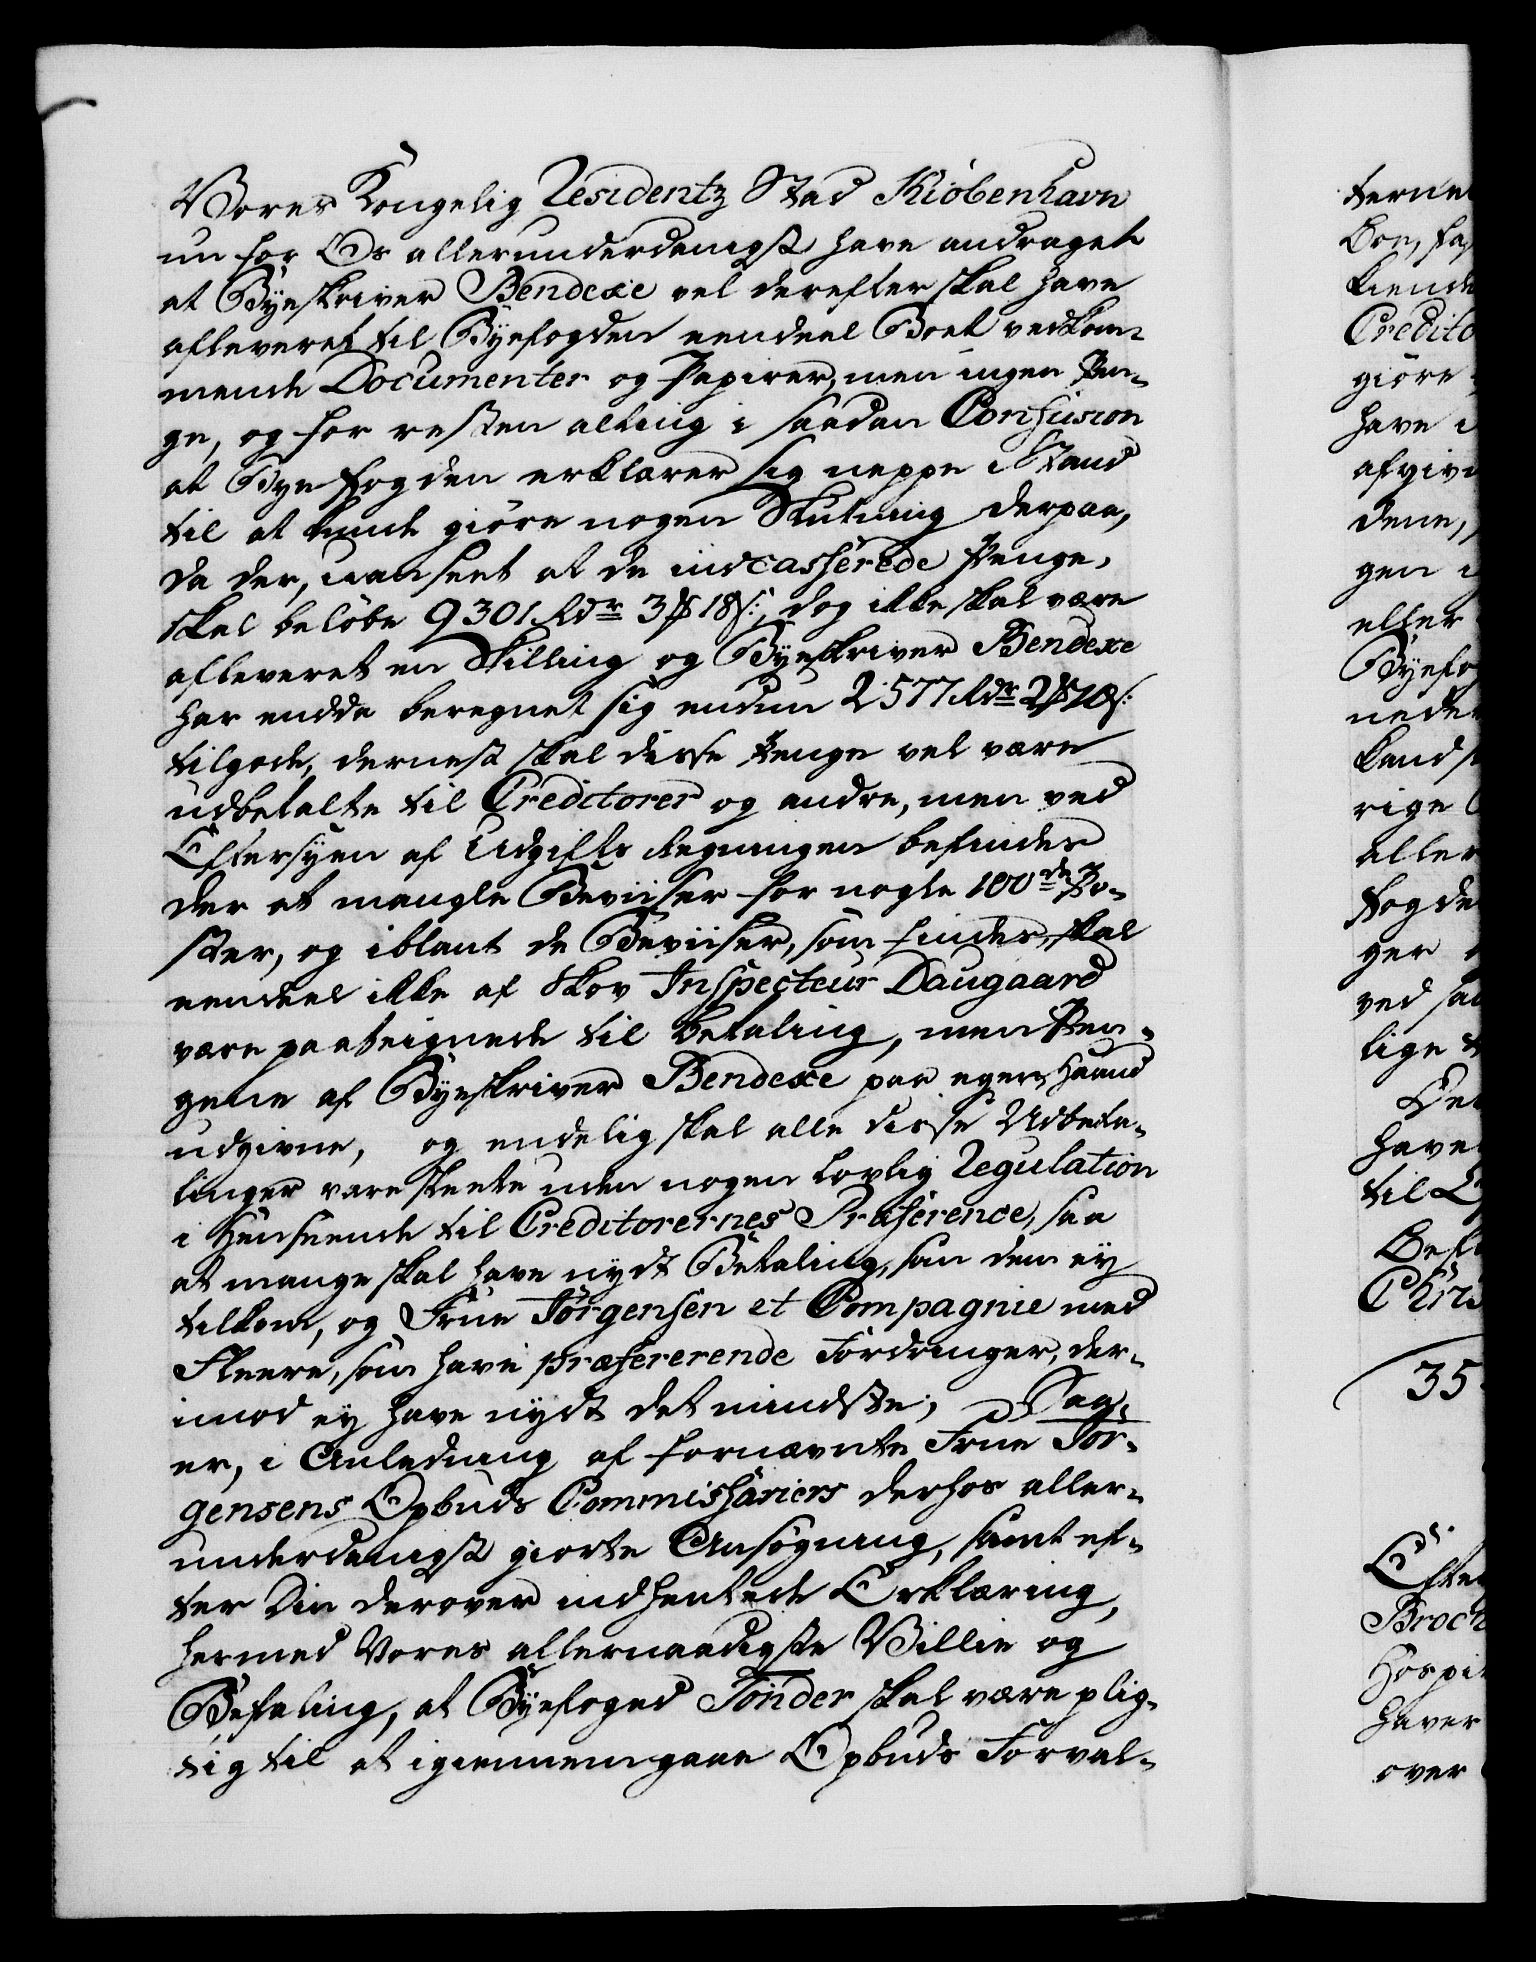 Vores Kongelig Residentz Stad Kiöbenhavn
nu for Os allerunderdanigst have andraget
at Byeskriver Bendexe vel derefter skal have
afleveret til Byefogden eendeel Boet vedkom-
mende Documenter og Papirer, men ingen Pen-
ge, og for resten alting i saadan Confusion
at Byefogden erklærer sig neppe i Stand
til at kunde giöre nogen Slutning derpaa,
da der, uanseet at de indcasserede Penge,
skal belöbe 9301 Rdr 3 ₻ 18 s:, dog ikke skal være
afleveret en Skilling og Byeskriver Bendexe
har endda beregnet sig endnu 2577 Rdr 2 ₻ 10 s:
tilgode, dernest skal disse Penge vel være
udbetalte til Creditorer og andre, men ved
Eftersyen af Udgifts Regningen befindes
der at mangle Beviiser for nogle 100de Po-
ster, og iblant de Beviiser, som findes, skal
eendeel ikke af Skov Inspecteur Daugaard
være paateignede til betaling, men Pen-
gene af Byeskriver Bendexe paa egen Haand
udgivne, og endelig skal alle disse Udbeta-
linger være skeete uden nogen lovlig Regulation
i Henseende til Creditorernes Præference, saa
at mange skal have nydt Betaling, som dem ey
tilkom, og Frue Jörgensen et Compagnie med
Fleere, som have præfererende Fordringer, der-
imod ey have nydt det mindste; Saa
er, i Anledning af fornævnte Frue Jör-
gensens Opbuds Commissariers derhos aller-
underdanigst giorte Ansögning, samt ef-
ter Din derover indhentede Erklæring,
hermed Vores allernaadigste Villie og
Befaling, at Byefoged Tönder skal være plig-
tig til at igiennemgaae Opbuds Forval-
terne
Boe, fa
kiende
Credito
giöre
have i
afgive
dene,
gen i
eller
Byefog
neder
kand
rige
aller
fogde
ger
ved saa
lige
Der
have
til
Befa
Chris
35
Efter
Broch
Hospi
haver
over